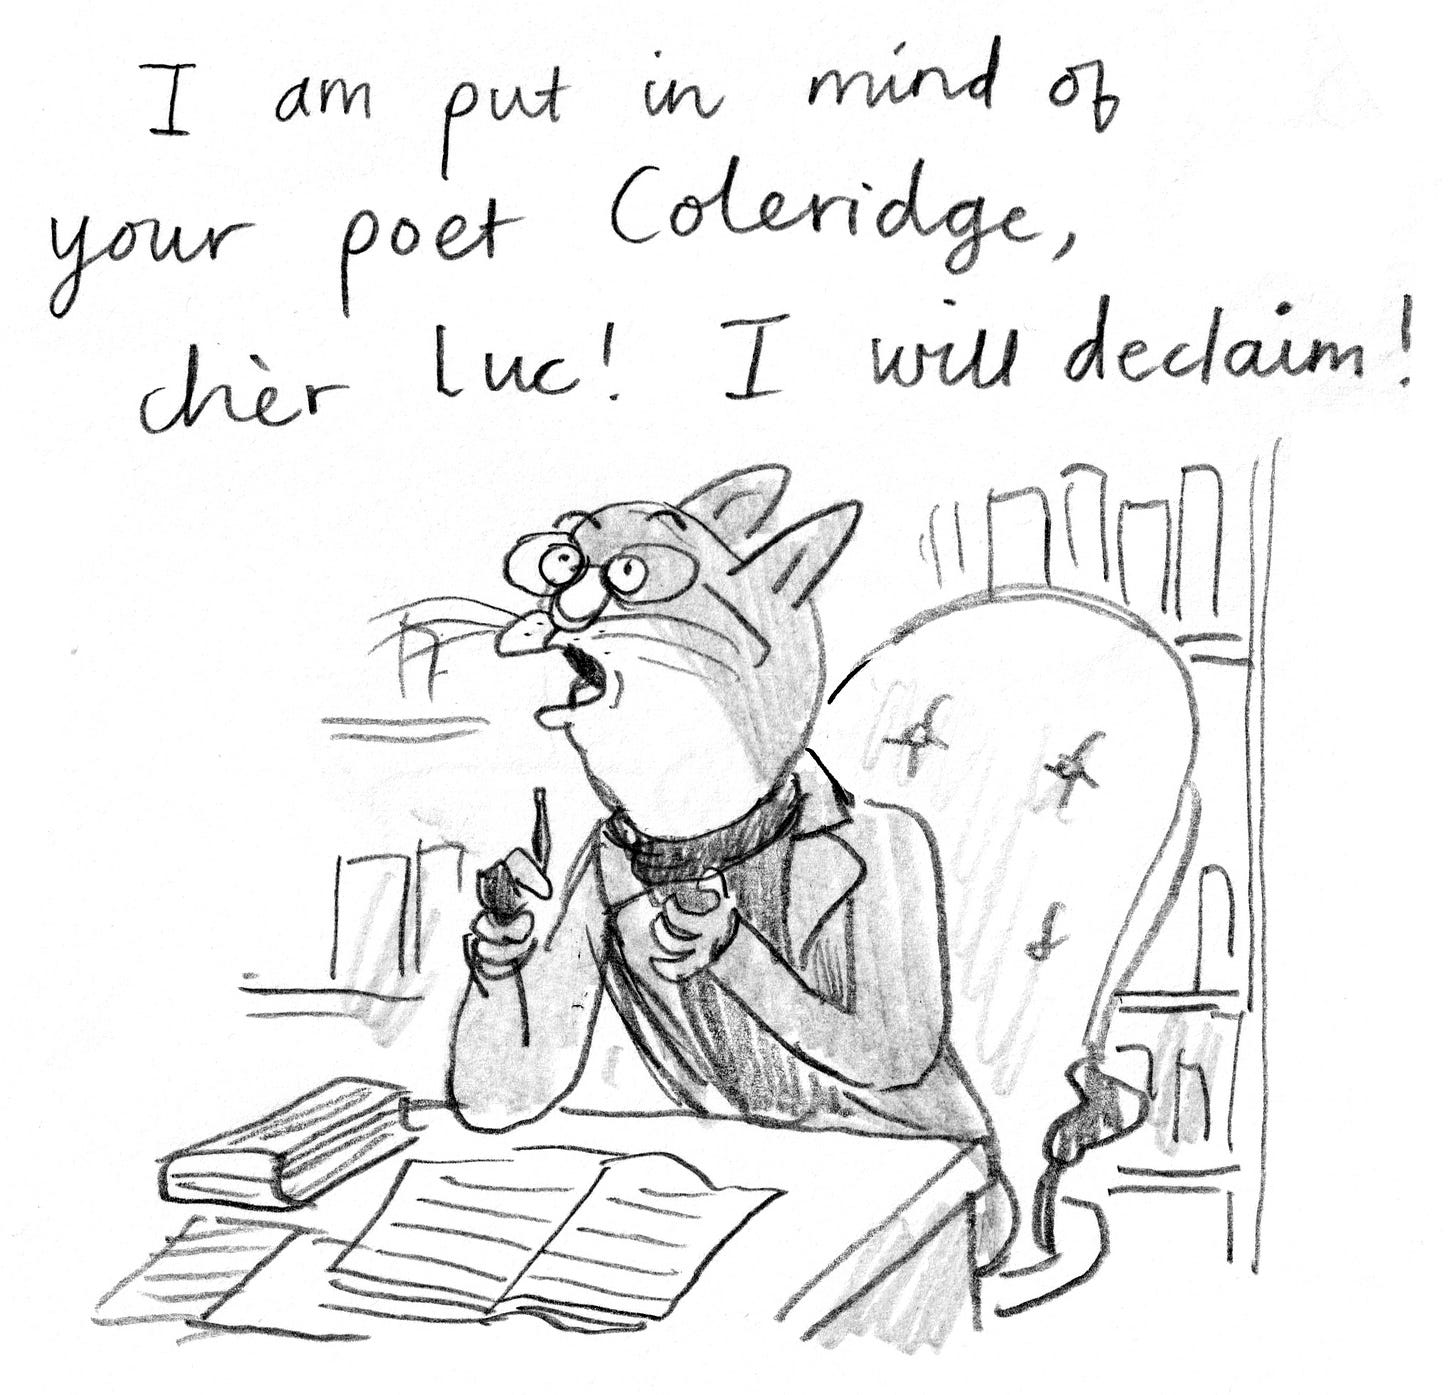 I am put in mind of
your poet Coleridge,
chèr Luc! I will declaim!